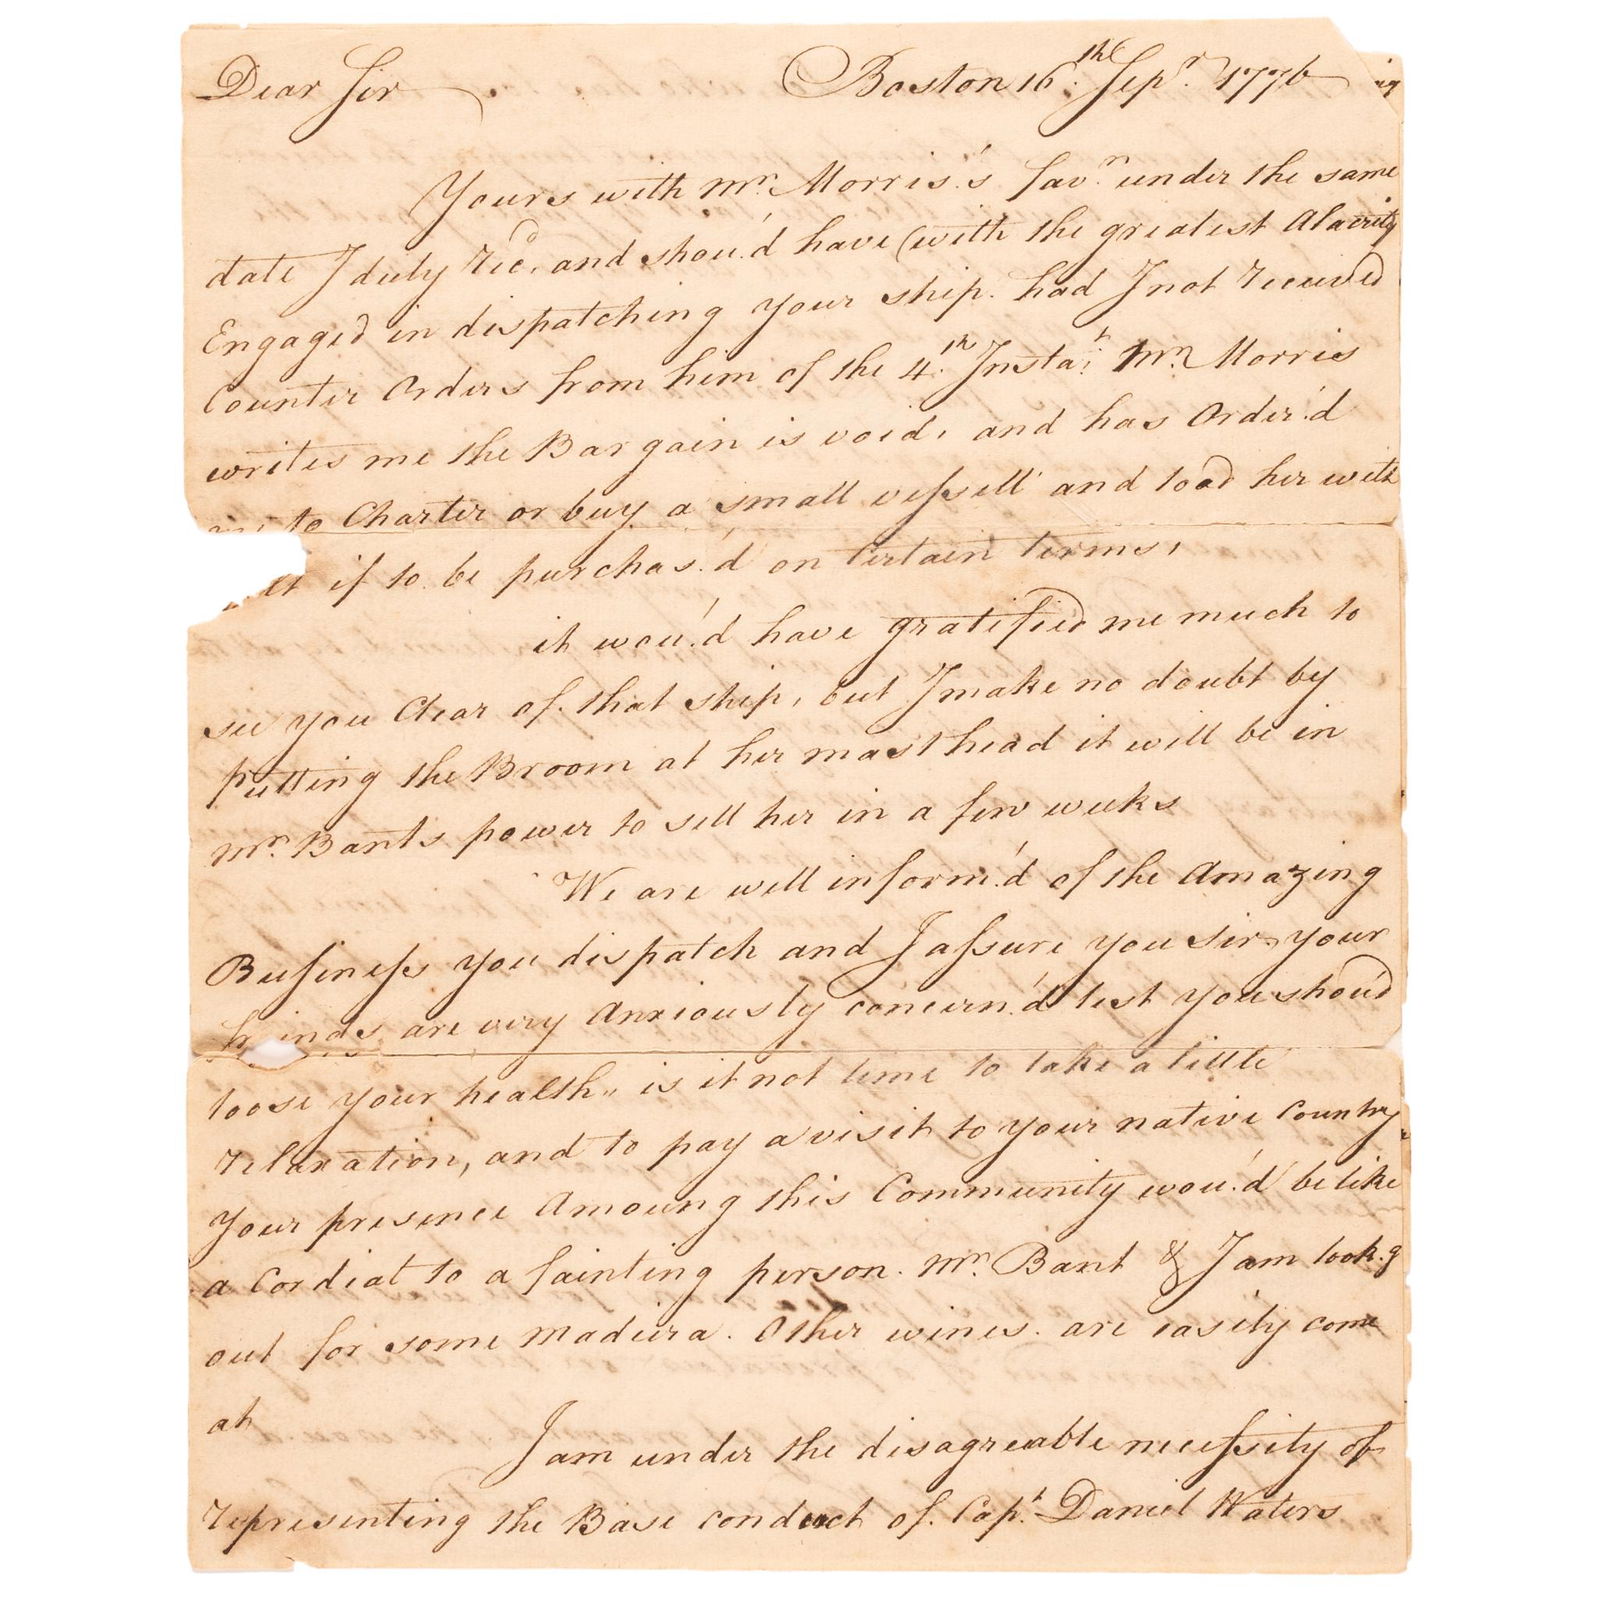 Dear Sir Boston 16th Sepr. 1776
Yours with Mr. Morris's favr. under the same
date I duly recd. and shou'd have (with the greatest Alacrity
Engaged in dispatching your ship. had I not received
Counter Orders from him of the 4th. Instat. Mr. Morris
writes me the Bargain is void, and has Order'd
to Charter or buy a small vessell and load her with
if to be purchas'd on Certain terms,
it wou'd have gratified me much to
see you Clear of that ship, but I make no doubt by
putting the Broom at her mast head it will be in
Mr. Bants power to sell her in a few weeks
We are well inform'd of the Amazing
Business you dispatch and I assure you sir your
friends are very Anxiously concern'd lest you shou'd
loose your health,, is it not time to take a little
relaxation, and to pay a visit to your native Country
Your presence Amoung this Community wou'd be like
a Cordial to a fainting person. Mr. Bant & I am look.g
out for some Madiera. Other wines. are easily come
at
I am under the disagreeable necessity of
representing the Base conduct of. Capt. Daniel Waters